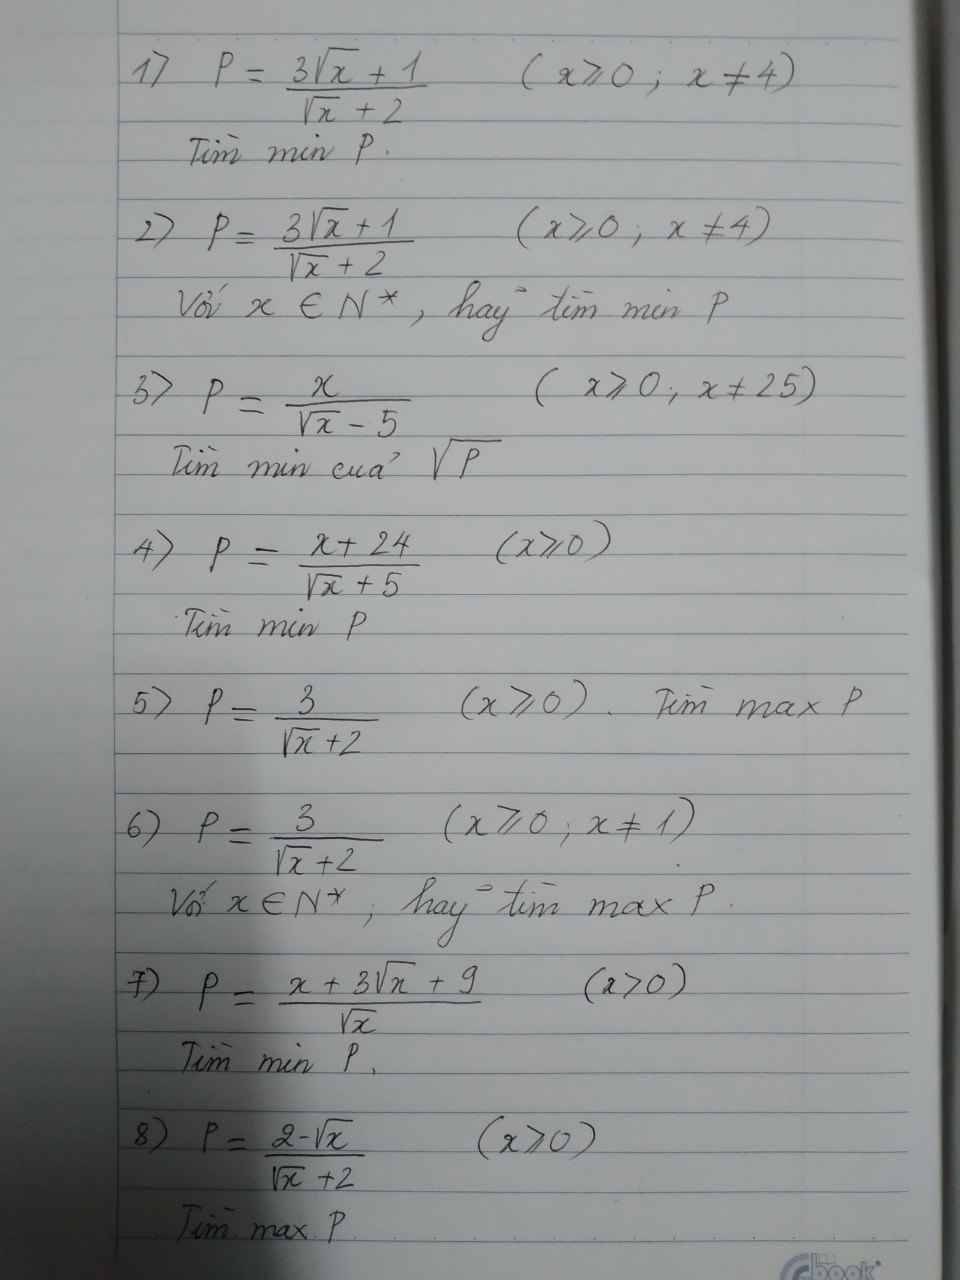 1) P = (3√x + 1)/(√x + 2) (x ≥ 0 ; x ≠ 4)
Tìm min P.
2) P = (3√x + 1)/(√x + 2) (x ≥ 0 ; x ≠ 4)
Với x ∈ N*, hãy tìm min P
3) P = x/(√x - 5) (x ≥ 0 ; x ≠ 25)
Tìm min của √P
4) P = (x + 24)/(√x + 5) (x ≥ 0)
Tìm min P
5) P = 3/(√x + 2) (x ≥ 0). Tìm max P
6) P = 3/(√x + 2) (x ≥ 0 ; x ≠ 1)
Với x ∈ N*, hãy tìm max P.
7) P = (x + 3√x + 9)/√x (x > 0)
Tìm min P.
8) P = (2 - √x)/(√x + 2) (x ≥ 0)
Tìm max P
book